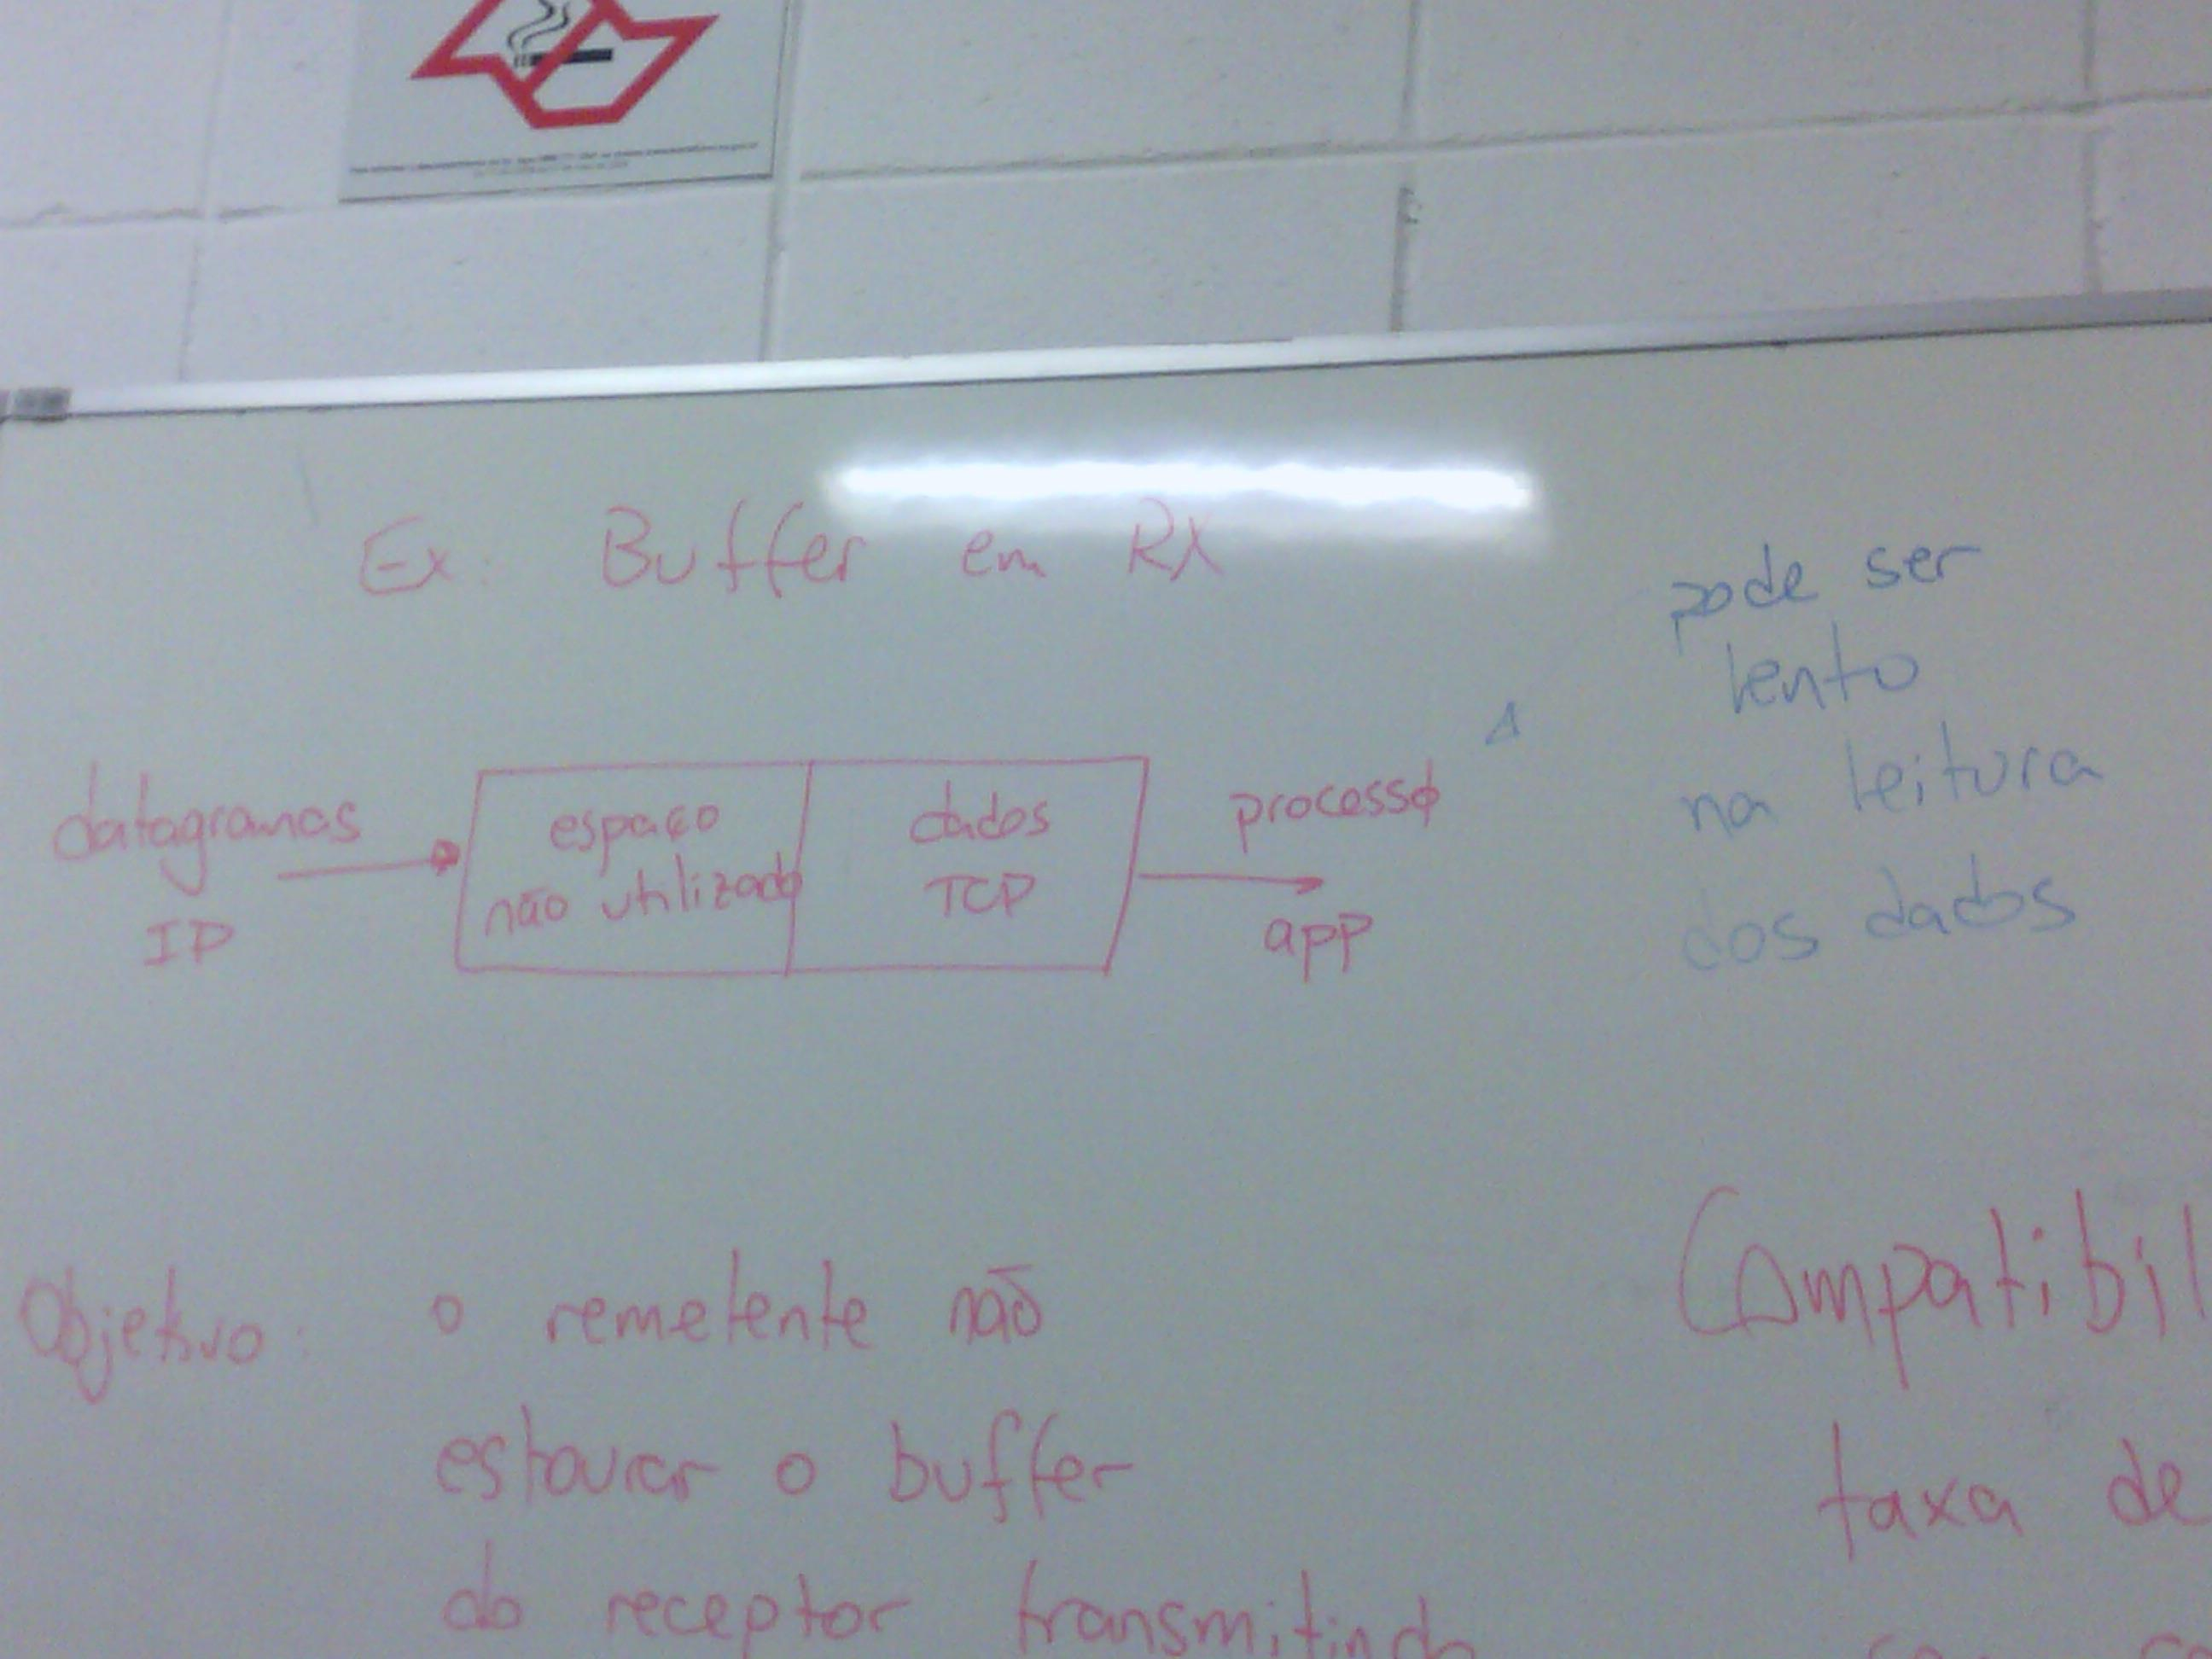 Ex: Buffer em RX
datagramas
IP
espaço
não utilizado
dados
TCP
processo
app
pode ser
lento
na leitura
dos dados
Objetivo: o remetente não
estourar o buffer
do receptor transmitindo
Compatibil
taxa de